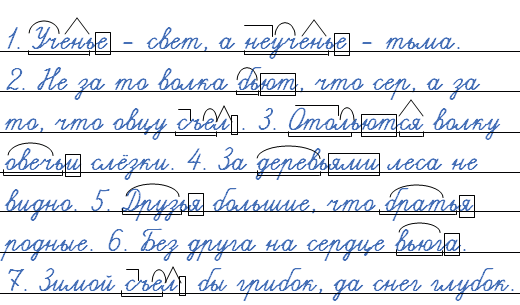 1. Ученье – свет, а неученье – тьма.
2. Не за то волка бьют, что сер, а за
то, что овцу съел. 3. Отольются волку
овечьи слёзки. 4. За деревьями леса не
видно. 5. Друзья большие, что братья
родные. 6. Без друга на сердце вьюга.
7. Зимой съел бы грибок, да снег глубок.